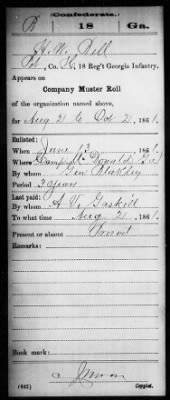 Confederate.
B 18 Ga.
H. M. Bell
Pvt, Co. H, 18 Reg't Georgia Infantry.
Appears on
Company Muster Roll
of the organization named above,
for Aug 21 to Oct 21, 1861.
Enlisted:
When June 13, 1861.
Where Camp Donald Ga
By whom
Period 3 years
Last paid:
By whom A. V. Gaskill
To what time Aug 21, 1861.
Present or absent Present
Remarks:
Book mark:
(642) Copyist.